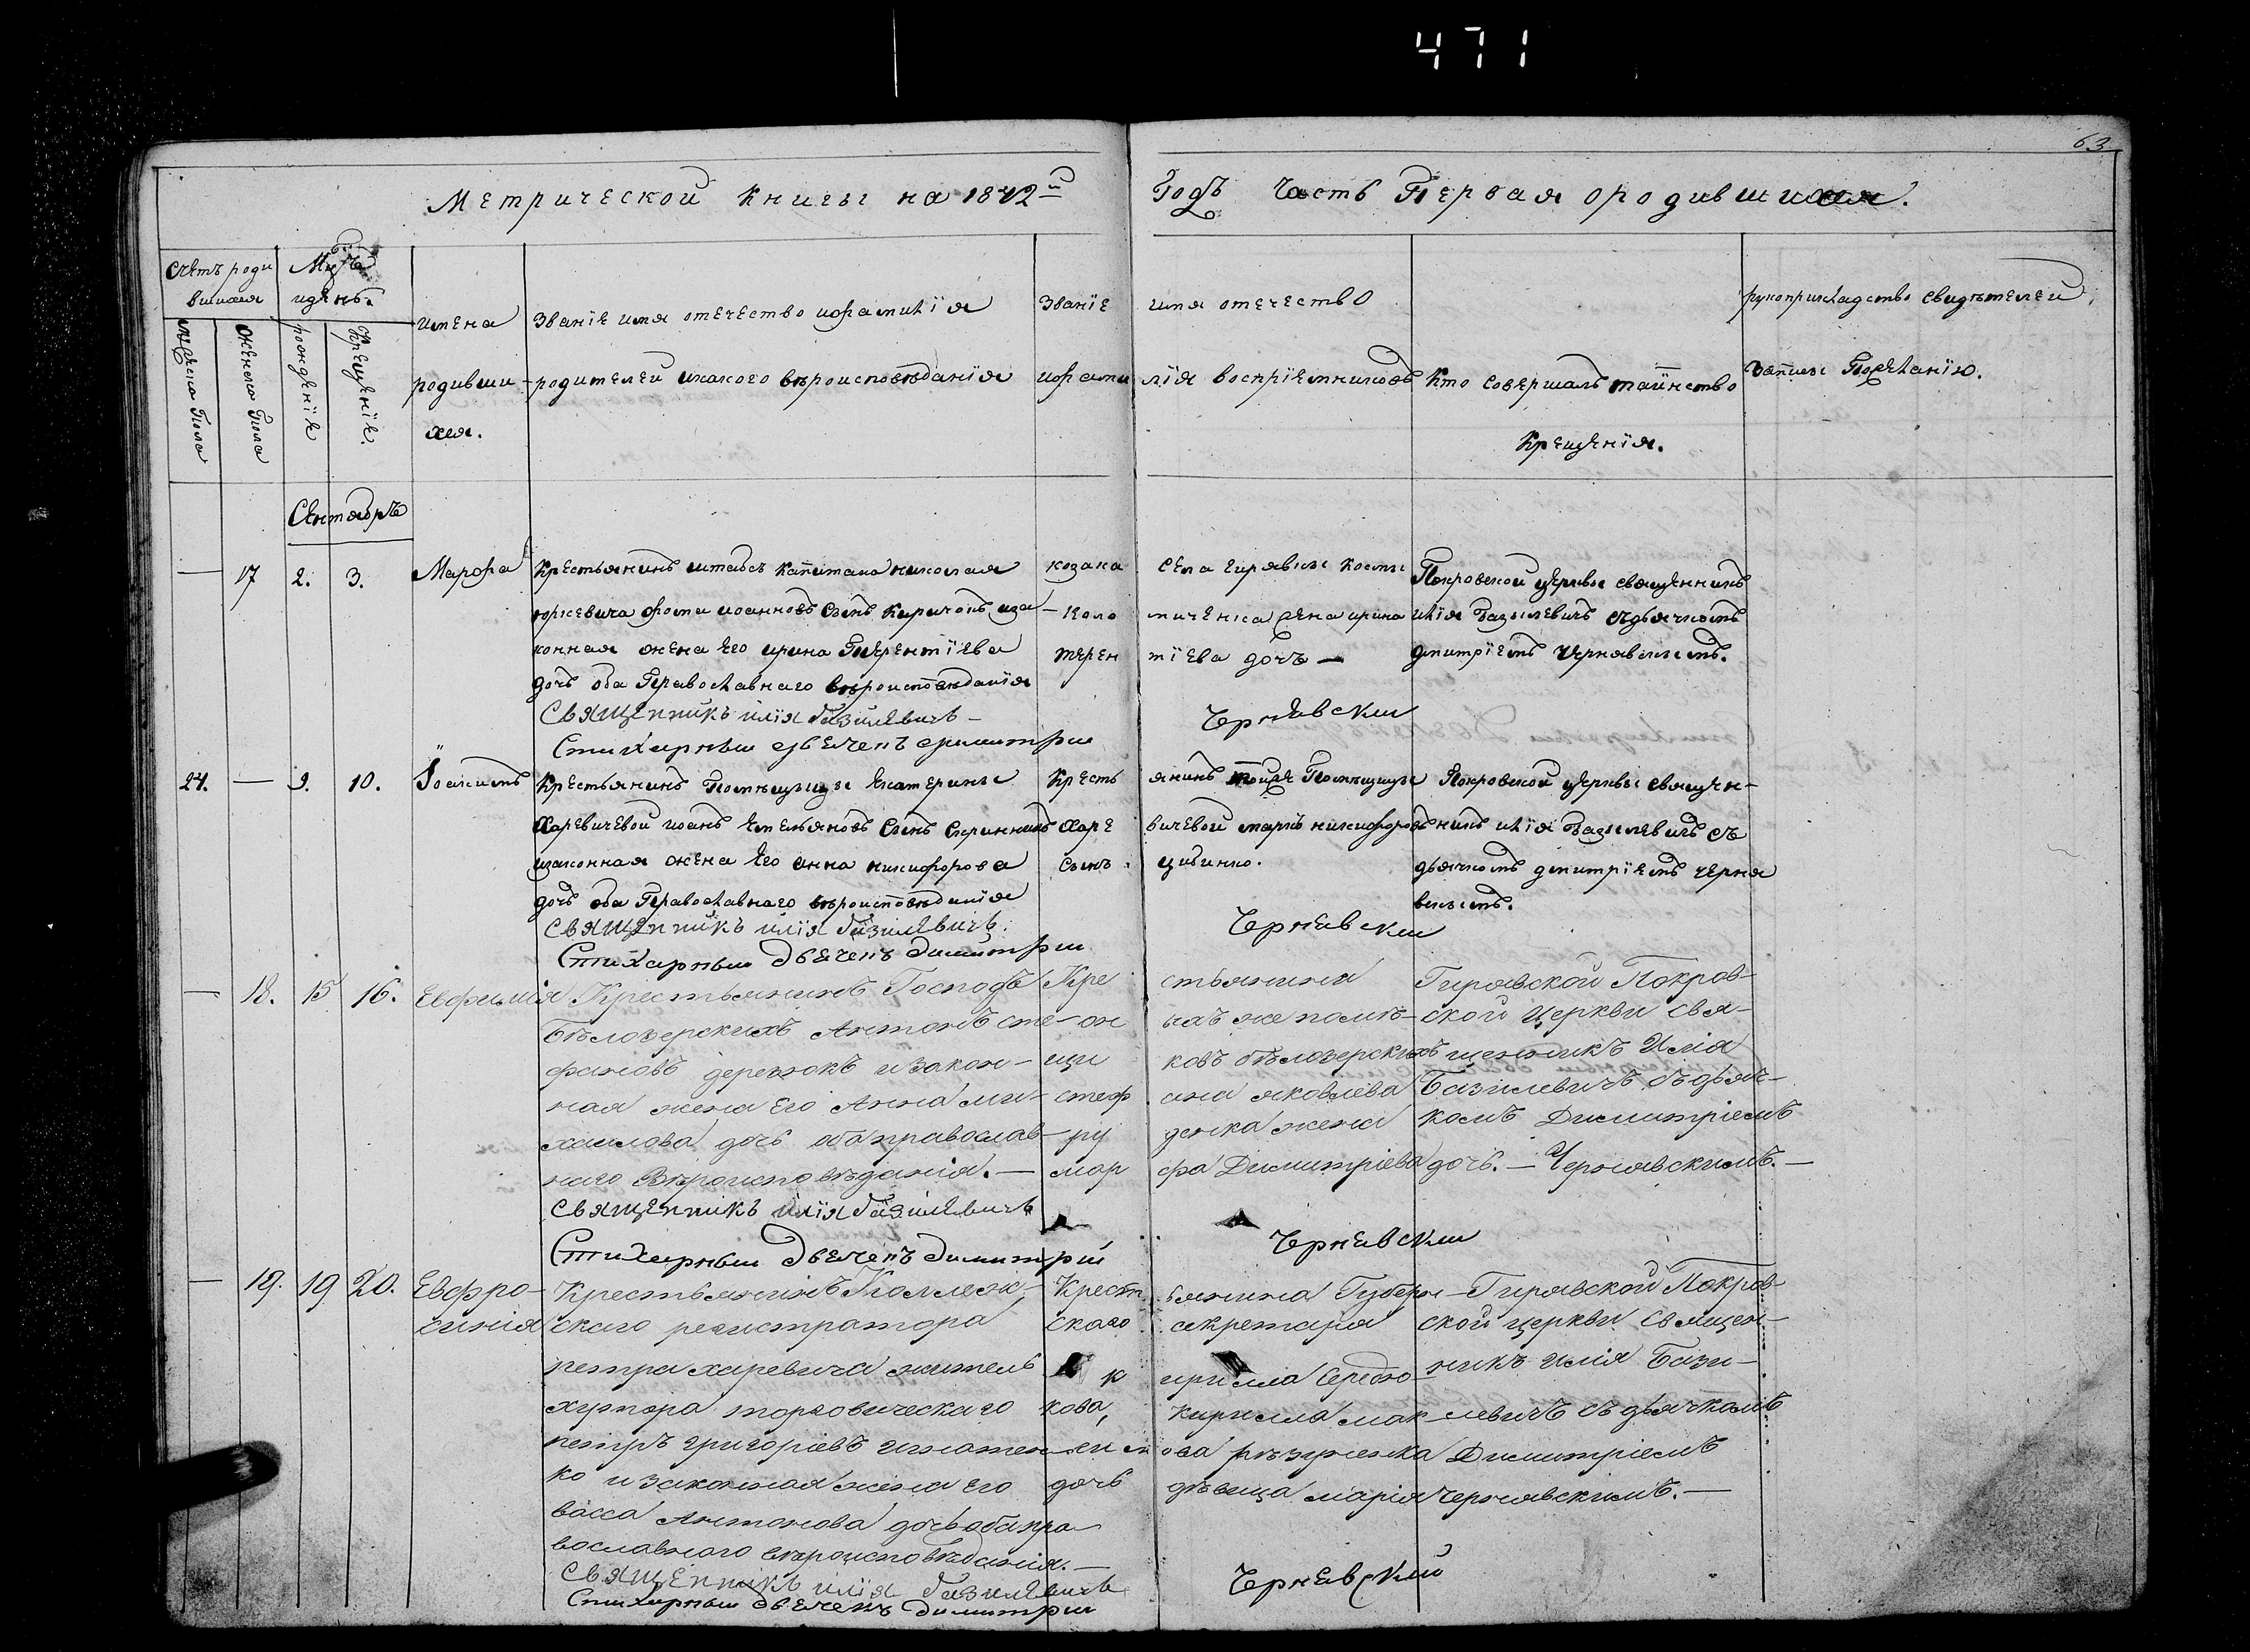 471
63
Метрической книги на 1842й Годъ Часть Первая о родившихся.
Счетъ роди
вшихся
Мужеска Пола
Женска Пола
Мцъ
и день.
рожденїе
Крещенїе.
имена
родивши-
хся.
Званїе имя отечество и фамилїя
родителей и какого вѣроисповѣданїя
Званїе имя отечество
и фамилїя воспрїемниковъ
Кто Совершалъ таинство
Крещенїя.
рукоприкладство свидѣтелей
Записи По желанїю.
Сентябръ
— 17 2. 3. Марфа
Крестьянинъ штабсъ капитана николая
юркевича фома иоанновъ Сынъ Киричокъ иза-
конная жена Его ирина Терентїева
дочь оба Православнаго вѣроисповѣданїя
Священникъ илїя базилевичъ
Стихарный дьячекъ димитрий Чернявский
козака села гирявки
жена ирина
терентїева дочъ —
Покровской церквы священникъ
илїя Базылевичъ съ дьячкомъ
дмитрїемъ чернявскымъ.
24. — 9. 10. Їоакимъ
Крестьянинъ Помѣщицы Екатерины
Харевичевой иоанъ Емельяновъ Сынъ Скринникъ
изаконная жена Его анна никифорова
дочь оба Православнаго вѣроисповѣданїя
Священникъ илїя базилевичъ.
Стихарный дьячекъ димитрий Чернявский
Крестьянинъ тойже Помѣщицы
Харевичевой марко никифоровъ
Сынъ цибинко.
Покровской церквы священ-
никъ илїя Базылевичъ съ
дьячкомъ дмитрїемъ черня
вскымъ.
— 18. 15 16. Евфимия
Крестьянинъ Господъ
Бѣлозерскихъ Антонъ сте-
фановъ деренокъ и закон-
ная жена Его Анна ми-
хаилова дочь оба православ-
наго Вѣроисповѣданія. —
Священникъ илїя базилевичъ
Стихарный дьячекъ димитрий Чернявский
Крестьянина
онаъ же помѣ-
щиковъ бѣлозерскихъ
стефана яковлева
руденка жена
марфа Димитріева дочь. —
Гирявской Покров-
ской Церкви Свя-
щенникъ Илія
Базилевичъ съ дьяч-
комъ Димитріемъ
Чернявскимъ. —
— 19. 19 20. Евфро-
синия
Крестьянинъ Коллеж-
скаго регистратора
петра харевича житель
хутора торговическаго
петръ григоріевъ игнатен-
ко и законная жена Его
васса Антонова дочь оба пра
вославного вѣроисповѣданія. —
Священникъ илїя базилевичъ
Стихарный дьячекъ димитрий Чернявский
Крестьянина Губерн-
скаго секретаря
кирилла Середо
кова, кирилла мак
дочь дѣвица марія
Гирявской Покров-
ской церкви Священ-
никъ илія Бази-
левичъ съ дьячкомъ
Димитріемъ
Чернявскимъ. —